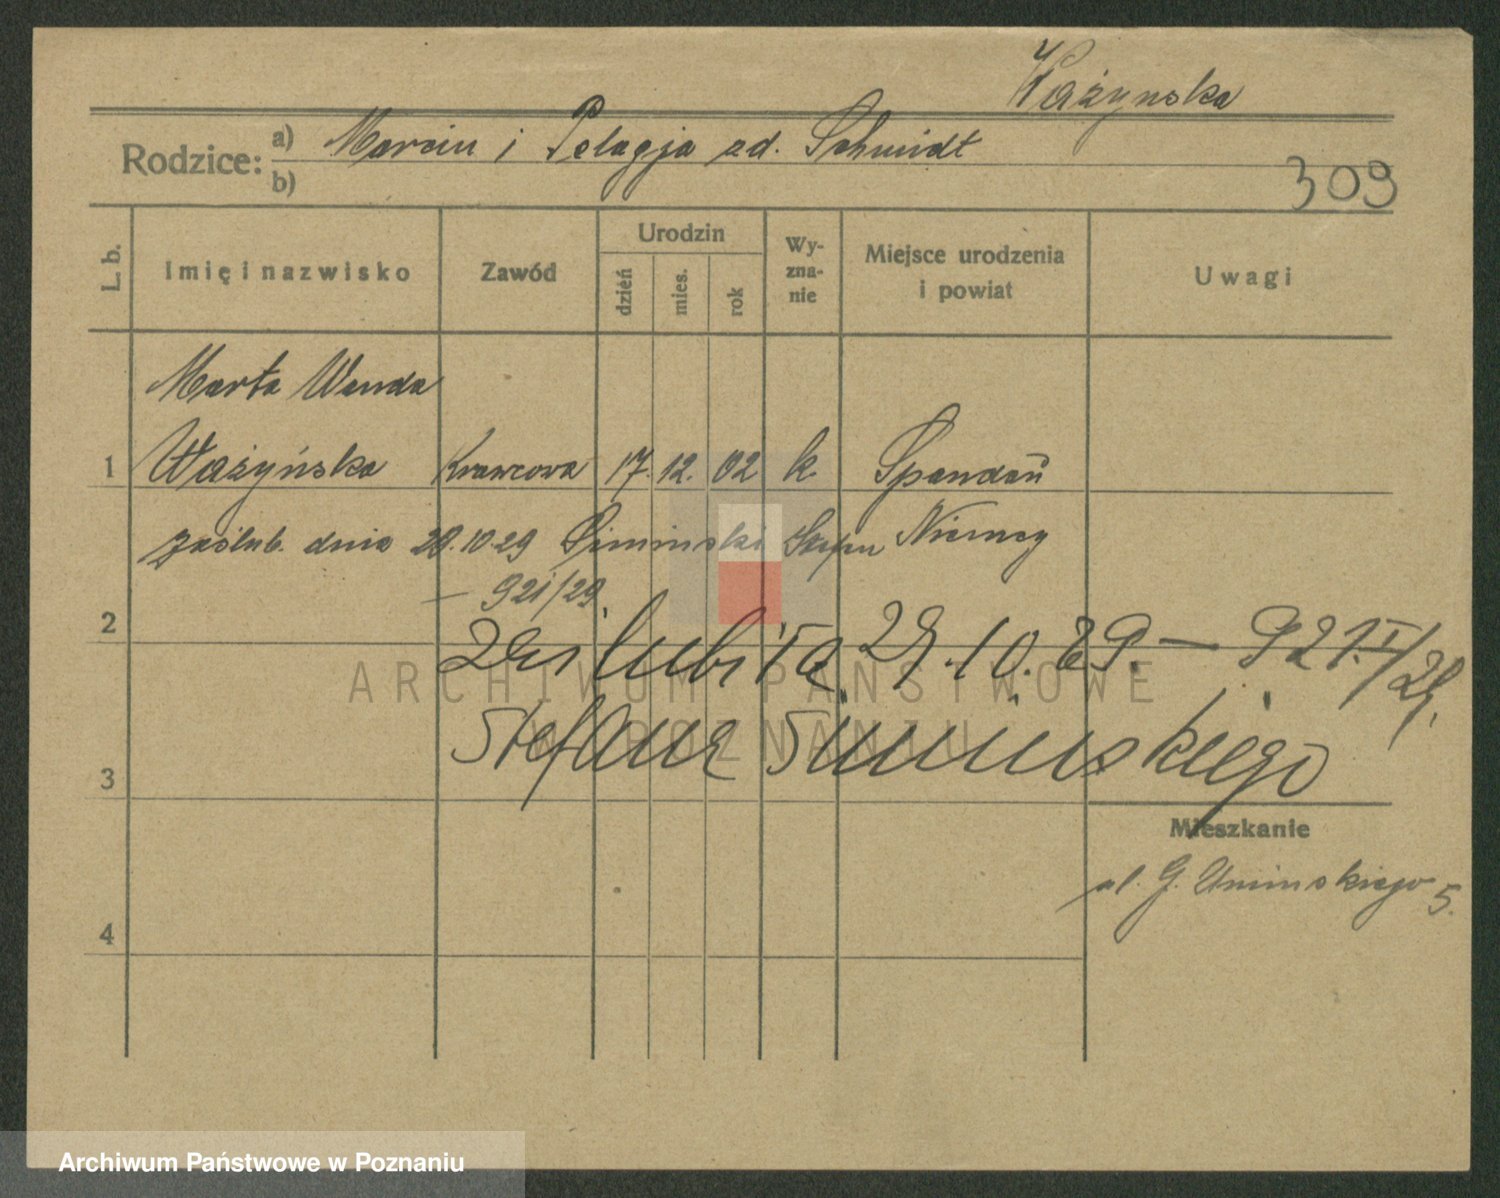 Ważynska
Rodzice: a) Marcin i Pelagja zd. Schmidt
b)
309
L. b.
Imię i nazwisko
Zawód
Urodzin
dzień
mies.
rok
Wy-
zna-
nie
Miejsce urodzenia
i powiat
Uwagi
Marta Wanda
1 Ważyńska Krawcowa 17. 12. 02 k. Spandau
zaślub. dnia 29.10.29 Simiński Niemcy
— 921/29
2
zaślubiła 29.10.29. — 921.I/29.
Stefana Simińskiego
3
Mieszkanie
ul. G. Umińskiego 5.
4
ARCHIWUM PAŃSTWOWE
W POZNANIU
Archiwum Państwowe w Poznaniu